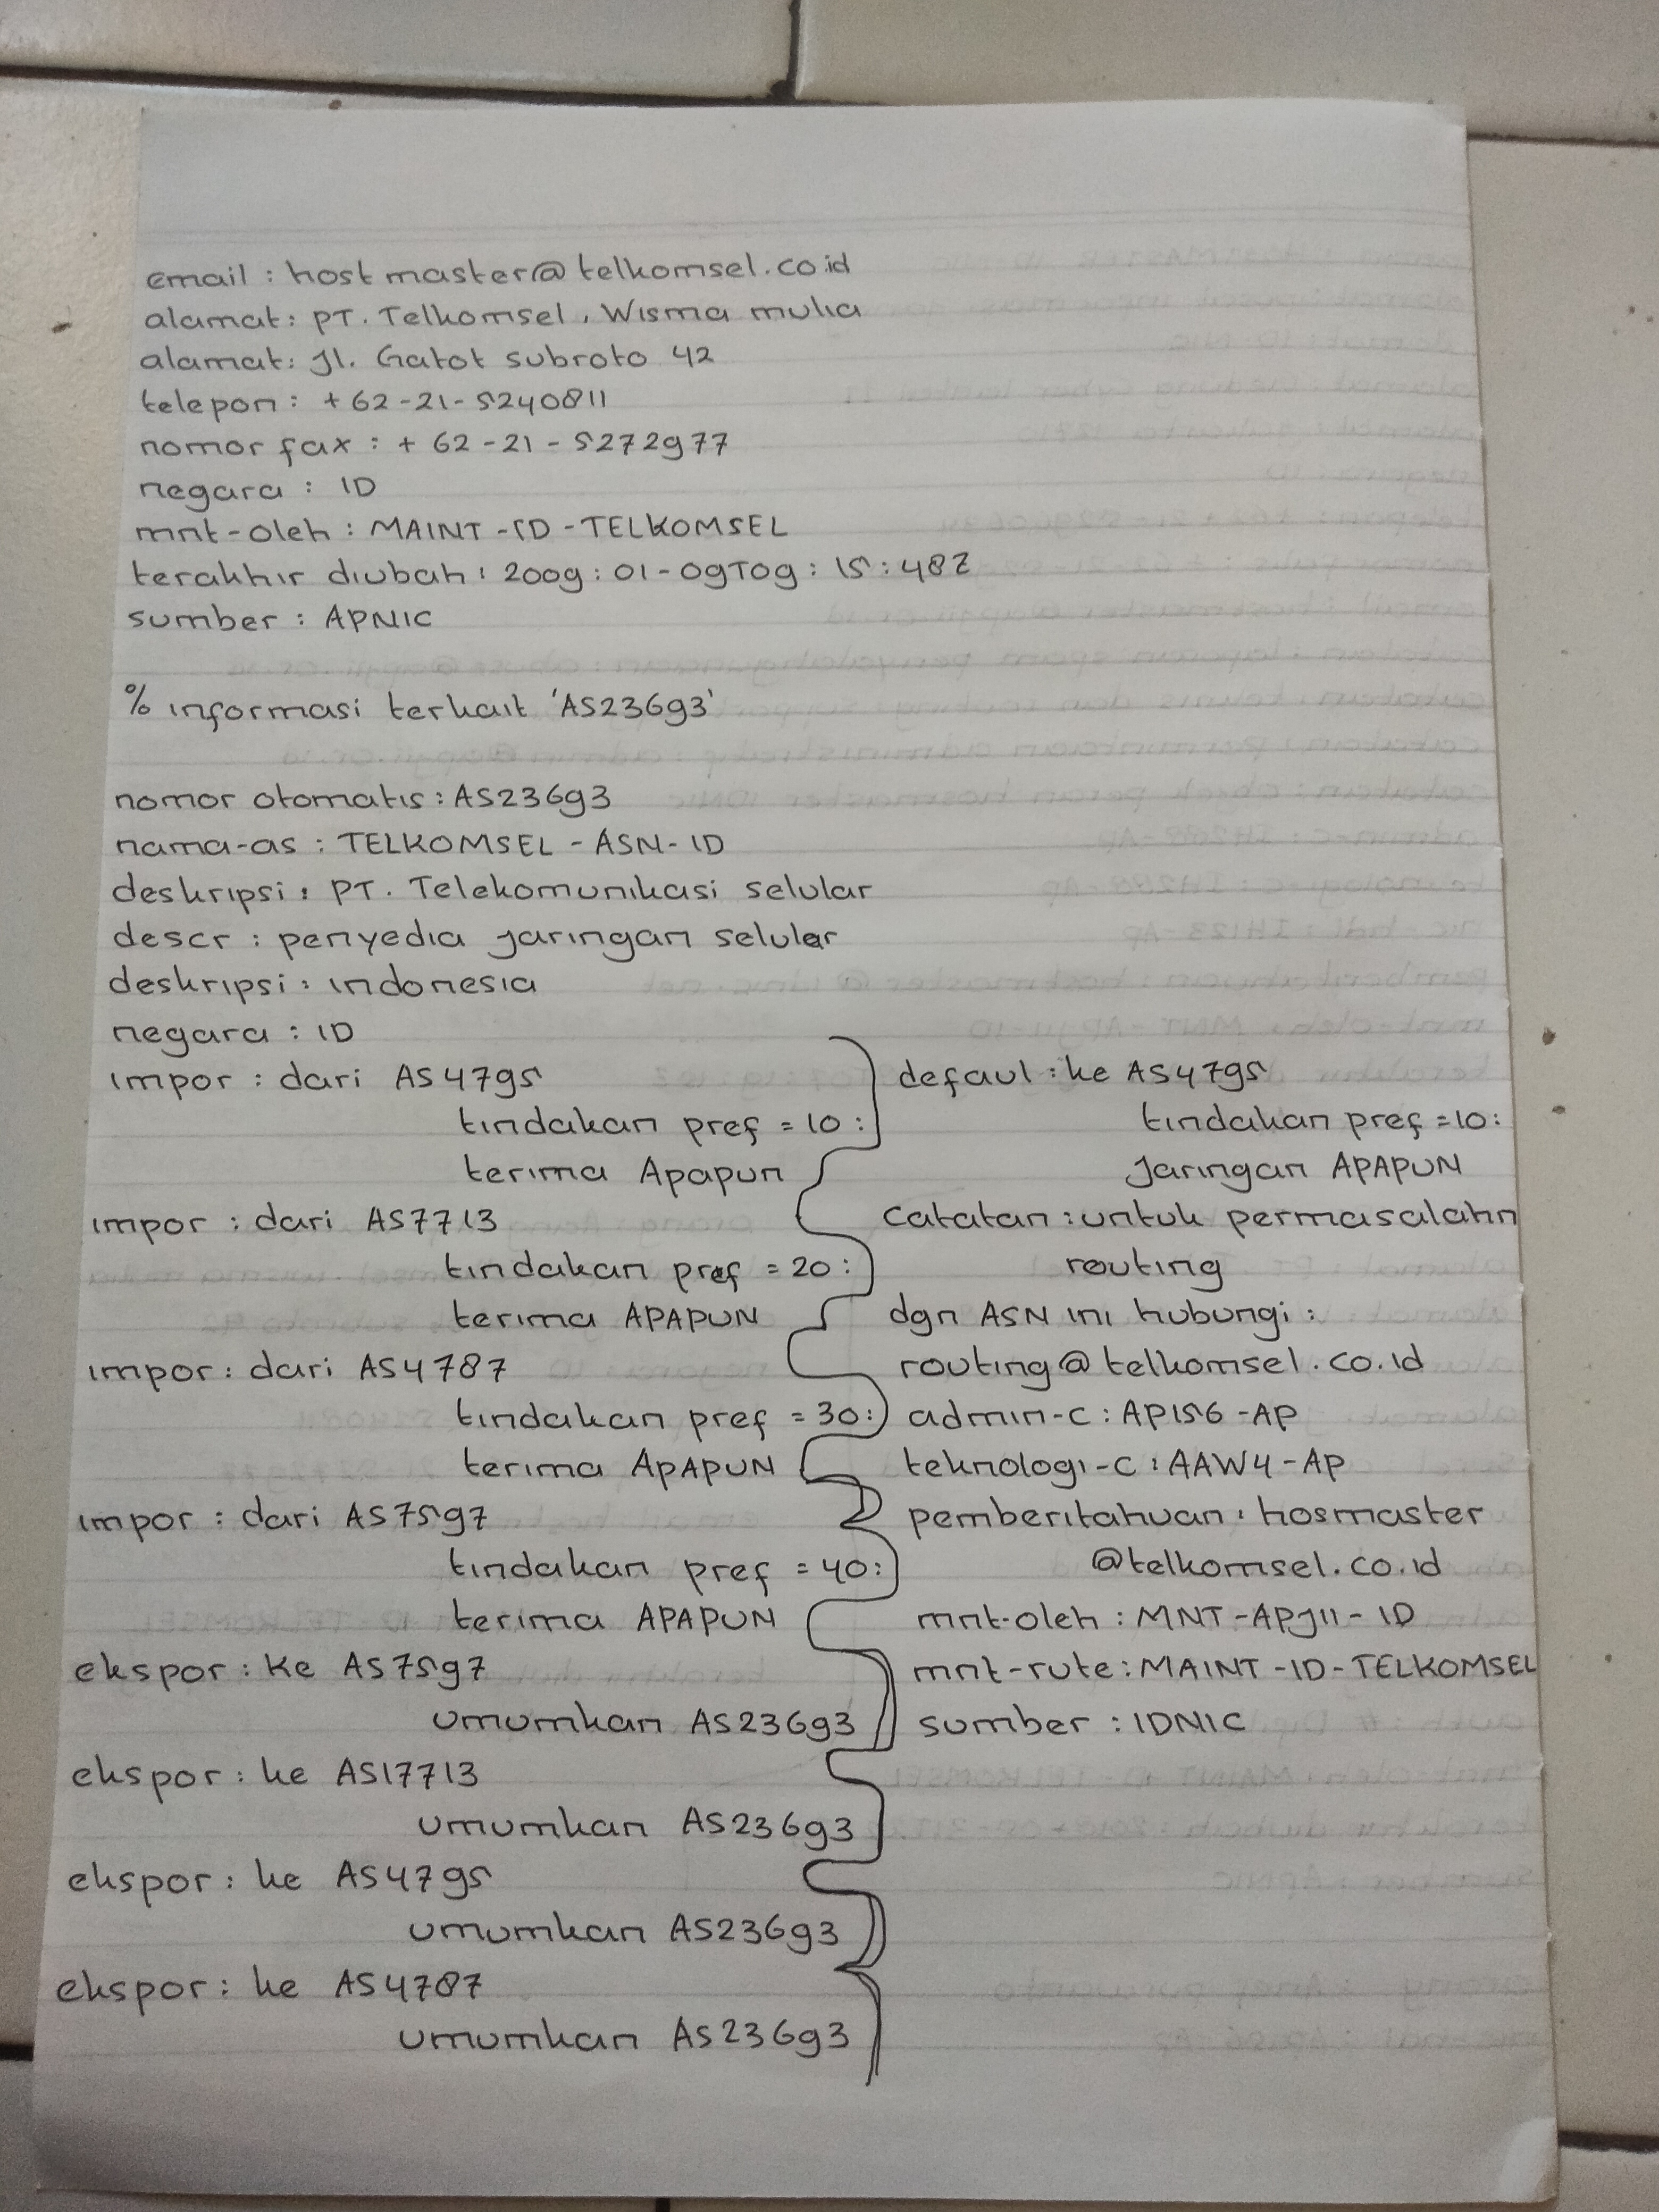 email : host master@telkomsel.co.id
alamat : PT. Telkomsel, Wisma mulia
alamat : Jl. Gatot subroto 42
telepon : +62-21-5240811
nomor fax : +62-21-5272977
negara : ID
mnt-oleh : MAINT-ID-TELKOMSEL
terakhir diubah : 2009:01-09T09:15:48Z
sumber : APNIC
% informasi terkait 'AS23693'
nomor otomatis : AS23693
nama-as : TELKOMSEL-ASN-ID
deskripsi : PT. Telekomunikasi selular
descr : penyedia jaringan seluler
deskripsi : indonesia
negara : ID
impor : dari AS4795
tindakan pref = 10 :
terima Apapun
impor : dari AS7713
tindakan pref = 20 :
terima APAPUN
impor : dari AS4787
tindakan pref = 30 :
terima APAPUN
impor : dari AS7597
tindakan pref = 40 :
terima APAPUN
ekspor : Ke AS7597
umumkan AS23693
ekspor : ke AS17713
umumkan AS23693
ekspor : ke AS4795
umumkan AS23693
ekspor : ke AS4787
umumkan AS23693
defaul : ke AS4795
tindakan pref = 10 :
Jaringan APAPUN
Catatan : untuk permasalahn
routing
dgn ASN ini hubungi :
routing@telkomsel.co.id
admin-c : AP156-AP
teknologi-c : AAW4-AP
pemberitahuan : hosmaster
@telkomsel.co.id
mnt-oleh : MNT-APJII-ID
mnt-rute : MAINT-ID-TELKOMSEL
sumber : IDNIC